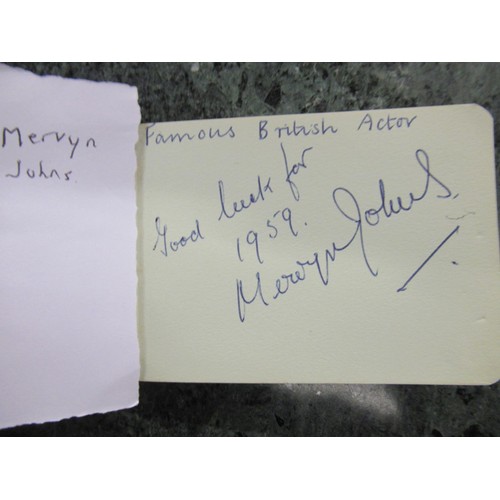 Mervyn
Johns.
Famous British Actor
Good luck for
1959.
Mervyn Johns.